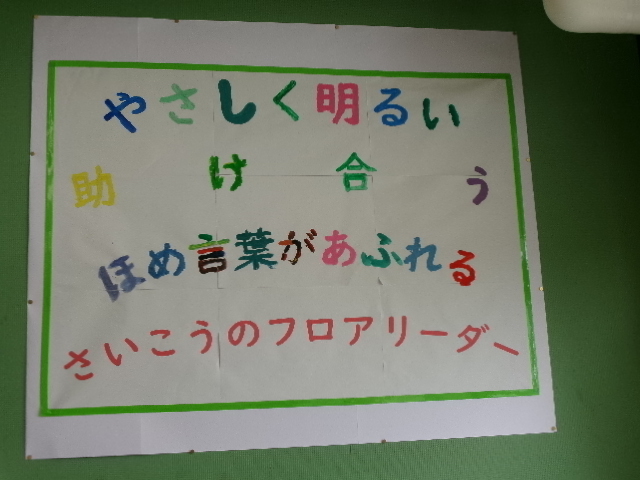 やさしく明るい
助け合う
ほめ言葉があふれる
さいこうのフロアリーダー